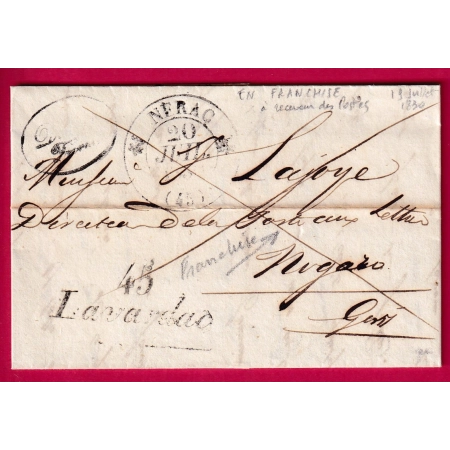 EN FRANCHISE
à receveur des Postes
19 juillet
1830
NERAC
20
JUIL
(45)
Monsieur Lafoye
Directeur de la Poste aux Lettres
franchise
Nogaro
Gers
45
Lavardac